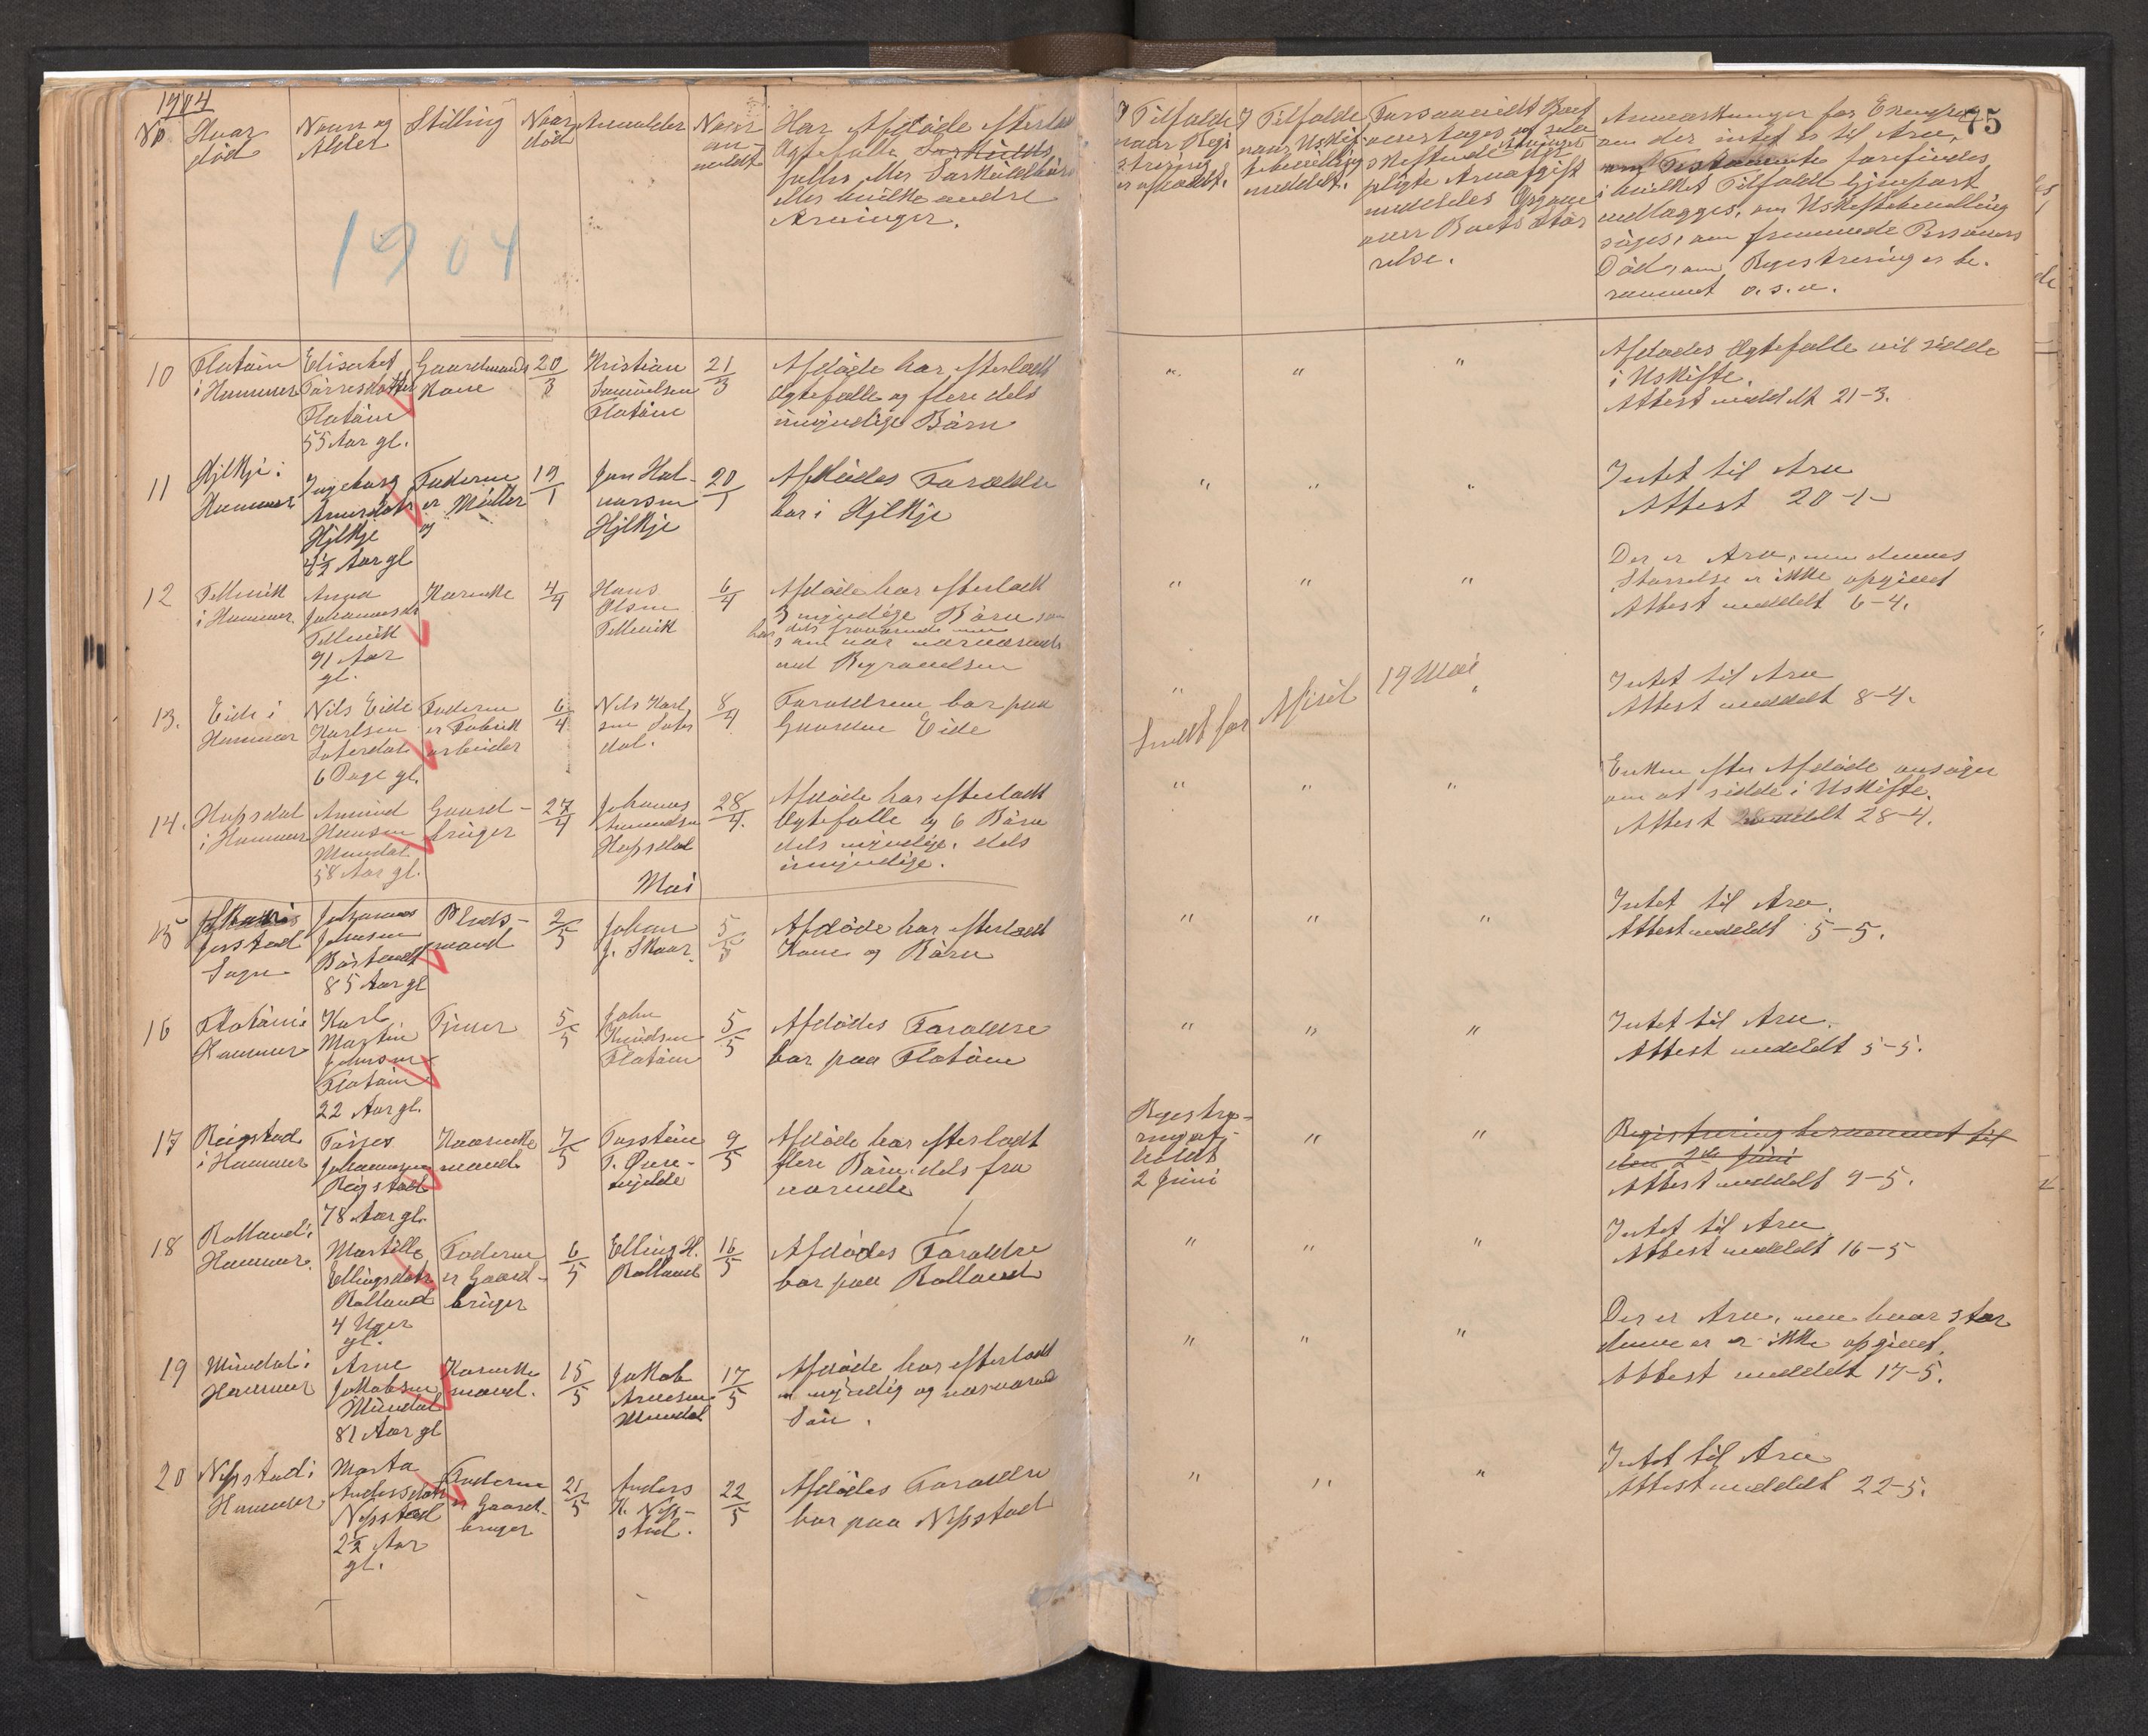 1904
No
Hvor
død
Navn og
Alder
Stilling
Naar
død
Anmelder
Naar
an-
meldt
Har Afdøde efterladt
Ægtefælle Særkuldbørn
eller hvilke andre
Arvinger.
I Tilfælde
naar Regi
strering
er afholdt.
I Tilfælde
naar Uskif-
tebevilling
meddelt.
Forsaavidt Boet
overtages
pligte Arveafgift
meddeles Opgave
over Boets Stør
relse.
Anmærkninger for Exempel
om der intet er til Arv,
om Testamente forefindes
i hvilket Tilfælde Gjenpart
vedlægges, om Uskiftebevilling
søges, om fremmede Personers
Død, om Registrering er be-
rammet o.s.v.
75
1904
10
Flatøin
i Hammer
Elisabet
Tørresdatter
Fløtøin
55 Aar gl.
Gaardmands
Kone
20/3
Kristian
Samuelsen
Flatøin
21/3
Afdøde har efterladt
Ægtefælle og flere dels
umyndige Børn
"
"
"
Afdødes Ægtefælle vil sidde
i Uskifte.
Attest meddelt 21-3.
11
Hjelkje i
Hammer
Ingeborg
Arnesdatr
Hjelkje
4½ Aar gl
Faderen
er Møller
19/1
Jon Hal-
vorsen
Hjelkje
20/1
Afdødes Forældre
bor i Hjelkje
"
"
"
Intet til Arv
Attest 20-1-
12
Tellevik
i Hammer.
Anna
Johannesdr
Tellevik
91 Aar
gl.
Kaarenke
4/4
Hans
Olsen
Tellevik
6/4
Afdøde har efterladt
3 myndige Børn som
har dels fraværende men
som var nærværende
ved Begravelsen
"
"
"
Der er Arv, men dennes
Størrelse er ikke opgivet
Attest meddelt 6-4.
13.
Eide i
Hammer
Nils Eide
Karlsen
Saterdal
6 Dage gl.
Faderen
er Fabrik
arbeider
6/4
Nils Karl
sen Sater
dal.
8/4
Forældrene bor paa
Gaarden Eide
"
"
Sendt for April 19 Mai
Intet til Arv
Attest meddelt 8-4.
14.
Hopsdal
i Hammer
Amund
Hansen
Mundal
58 Aar gl.
Gaard-
bruger
27/4
Johannes
Amundsen
Hopsdal
28/4.
Afdøde har efterladt
Ægtefælle og 6 Børn
dels myndige, dels
umyndige.
"
"
"
Enken efter Afdøde ansøger
om at sidde i Uskifte.
Attest meddelt 28-4.
Mai
15
Skaar i
Jostad
Sogn
Johannes
Johnsen
Børtveit
85 Aar gl
Plads-
mand
2/5
Johan
J. Skaar.
5/5
Afdøde har efterladt
Kone og Børn
"
"
"
Intet til Arv.
Attest meddelt 5-5.
16
Flatøin i
Hammer
Karl
Martin
Johnsen
Flatøin
22 Aar gl.
Tjener
5/5
John
Knudsen
Flatøin
5/5
Afdødes Forældre
bor paa Flatøin
"
"
"
Intet til Arv.
Attest meddelt 5-5.
17
Reigstad
i Hammer
Tørres
Johannesen
Reigstad
78 Aar gl.
Kaarenke
mand
7/5
Torstein
T. Øvre-
9/5
Afdøde har efterladt
flere Børn dels fra
værende
Registre-
ring af-
holdt
2 Juni
"
"
Registrering berammet til
den 2den Juni
Attest meddelt 9-5.
18
Rolland i
Hammer.
Martille
Ellingsdatr
Rolland
4 Uger
gl.
Faderen
er Gaard-
bruger
6/5
Elling H.
Rolland
16/5
Afdødes Forældre
bor paa Rolland
"
"
"
Intet til Arv
Attest meddelt 16-5
19
Mundal i
Hammer
Arne
Jakobsen
Mundal
81 Aar gl
Kaarenke
mand.
15/5
Jakob
Arnesen
Mundal
17/5
Afdøde har efterladt
en myndig og nærværende
Søn.
"
"
"
Der er Arv, men hvor stor
denne er er ikke opgivet.
Attest meddelt 17-5.
20
Nepstad i
Hammer
Marta
Andersdatr
Nepstad
2½ Aar
gl.
Faderen
er Gaard-
bruger
21/5
Anders
K. Nep-
stad.
22/5
Afdødes Forældre
bor paa Nepstad
"
"
"
Intet til Arv
Attest meddelt 22-5.